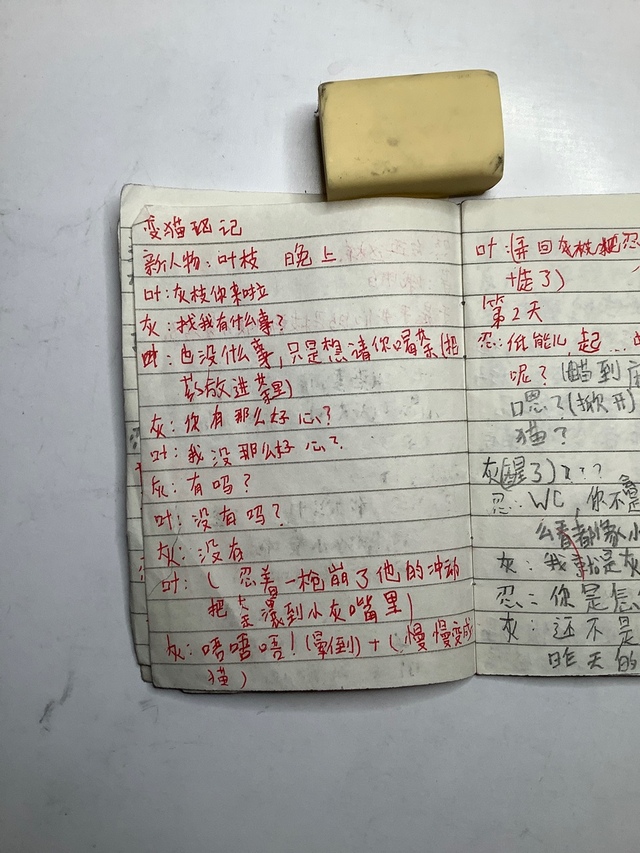 变猫现记
新人物：叶枝 晚上
叶：灰枝你来啦
灰：找我有什么事？
叶：也没什么事，只是想请你喝茶（把
药放进茶里）
灰：你有那么好心？
叶：我没那么好心？
灰：有吗？
叶：没有吗？
灰：没有
叶：（忍着一枪崩了他的冲动
把茶灌到小灰嘴里）
灰：唔唔唔！（晕倒）+（慢慢变成
猫）
叶：（弄回灰枝把忍
走了）
第2天
忍：低能儿，起…
呢？（瞄到
嗯？（掀开）
猫？
灰（醒了）？？？
忍：WC，你不是
么看都像小
灰：我就是灰
忍：你是怎
灰：还不是
昨天的